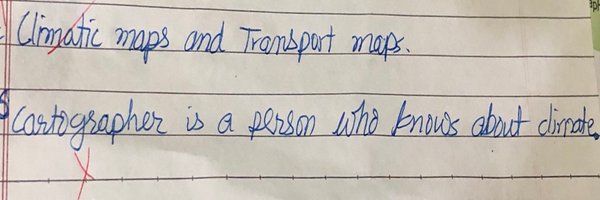 Climatic maps and Transport maps.
Cartographer is a person who knows about climate.